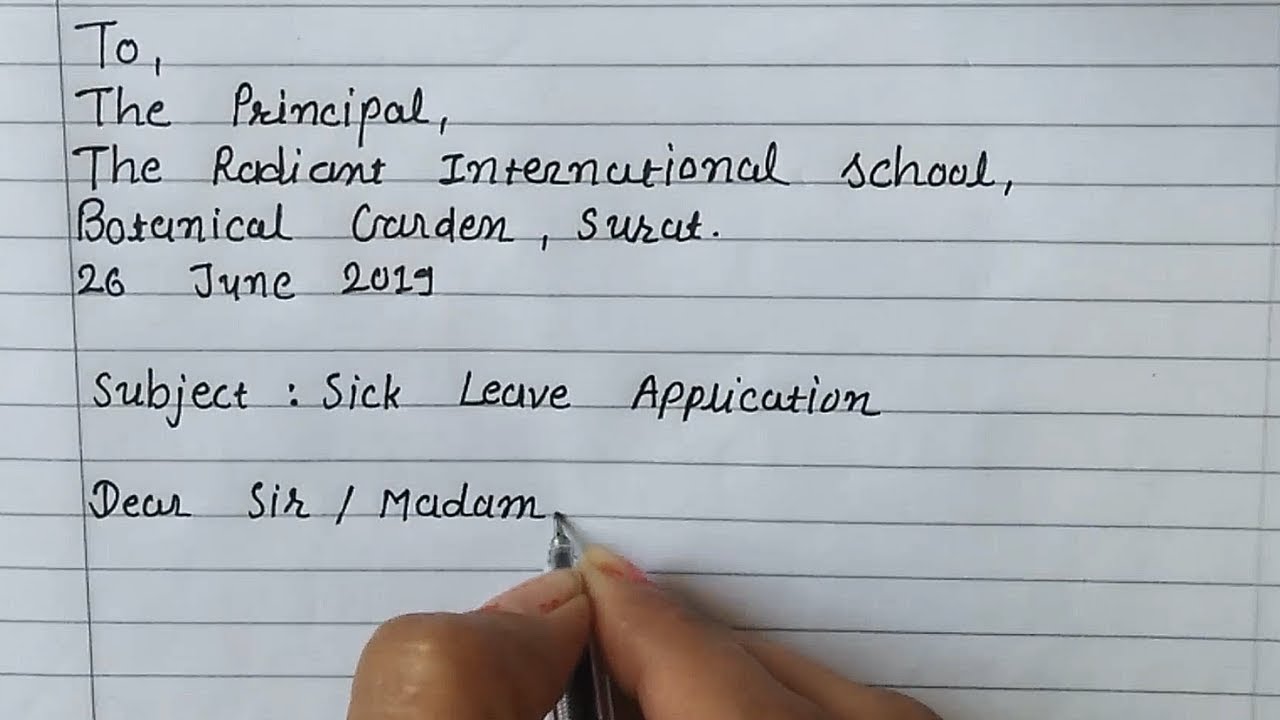 To,
The Principal,
The Radiant International school,
Botanical Garden, Surat.
26 June 2019
Subject : Sick Leave Application
Dear Sir / Madam